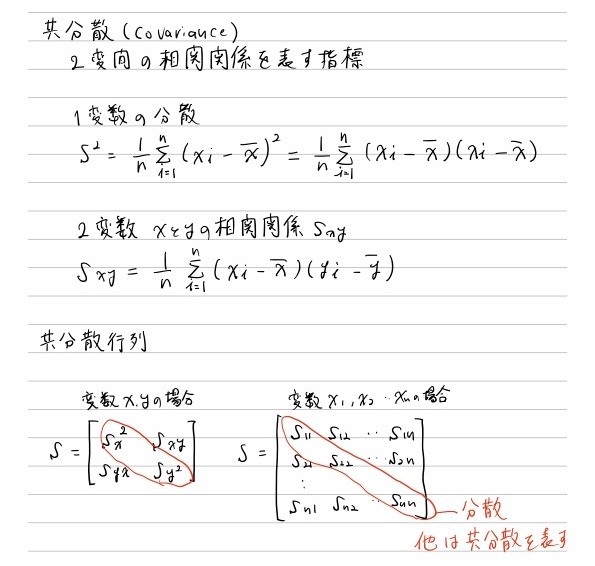 共分散 (Covariance)
2変向の相関関係を表す指標
1変数の分散
S² = 1/n Σ_{i=1}^{n} (xi - x̄)² = 1/n Σ_{i=1}^{n} (xi - x̄)(xi - x̄)
2変数 xとyの相関関係 Sxy
Sxy = 1/n Σ_{i=1}^{n} (xi - x̄)(yi - ȳ)
共分散行列
変数 x,yの場合 変数 x₁, x₂ ‥ xnの場合
S = [Sx² Sxy
Syx Sy²]
S = [S11 S12 ‥ S1n
S21 S22 ‥ S2n
:
Sn1 Sn2 ‥ Snn]
分散
他は共分散を表す